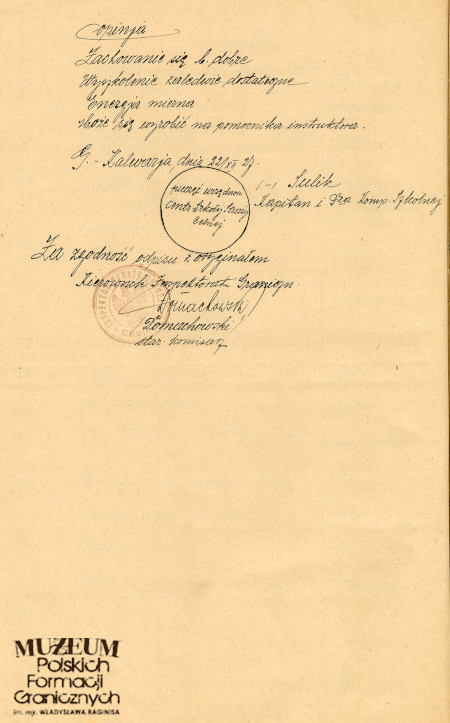 Opinja
Zachowanie się b. dobre
Wyszkolenie zaledwie dostateczne
Energja mierna
Może się wyrobić na pomocnika instruktora.
G.-Kalwarja dnia 22/XII 27.
pieczęć urzędowa
Centr Szkoły Straży
Celnej
(-) Sulik
Kapitan i Dca Komp. Szkolnej
Za zgodność odpisu z oryginałem
Kierownik Inspektoratu Graniczn.
Domachowski
star. komisarz
MUZEUM
Polskich
Formacji
Granicznych
im. mjr. WŁADYSŁAWA RAGINISA